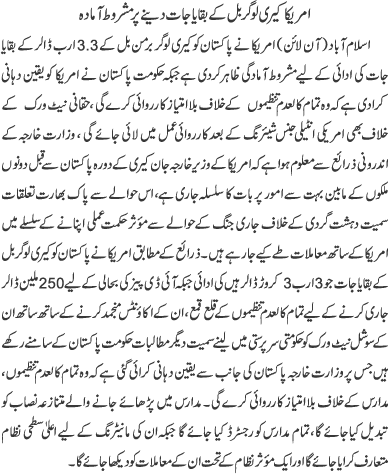 امریکا کیری لوگر بل کے بقایا جات دینے پر مشروط آمادہ
اسلام آباد (آن لائن) امریکا نے پاکستان کو کیری لوگر برمن بل کے 3.3 ارب ڈالر کے بقایا
جات کی ادائی کے لیے مشروط آمادگی ظاہر کردی ہے جبکہ حکومت پاکستان نے امریکا کو یقین دہانی
کرا دی ہے کہ وہ تمام کالعدم تنظیموں کے خلاف بلاامتیاز کارروائی کرے گی، حقانی نیٹ ورک کے
خلاف بھی امریکی انٹیلی جنس شیئرنگ کے بعد کارروائی عمل میں لائی جائے گی، وزارت خارجہ کے
اندرونی ذرائع سے معلوم ہوا ہے کہ امریکا کے وزیر خارجہ جان کیری کے دورہ پاکستان سے قبل دونوں
ملکوں کے مابین بہت سے امور پر بات کا سلسلہ جاری ہے، اس حوالے سے پاک بھارت تعلقات
سمیت دہشت گردی کے خلاف جاری جنگ کے حوالے سے مؤثر حکمت عملی اپنانے کے سلسلے میں
امریکا کے ساتھ معاملات طے کیے جارہے ہیں۔ ذرائع کے مطابق امریکا نے پاکستان کو کیری لوگر بل
کے بقایا جات جو 3 ارب 3 کروڑ ڈالر ہیں کی ادائی جبکہ آئی ڈی پیز کی بحالی کے لیے 250 ملین ڈالر
جاری کرنے کے لیے تمام کالعدم تنظیموں کے قلع قمع، ان کے اکاؤنٹس منجمد کرنے کے ساتھ ساتھ ان
کے سوشل نیٹ ورک کو حکومتی سرپرستی میں لینے سمیت دیگر مطالبات حکومت پاکستان کے سامنے رکھے
ہیں جس پر وزارت خارجہ پاکستان کی جانب سے یقین دہانی کرائی گئی ہے کہ وہ تمام کالعدم تنظیموں،
مدارس کے خلاف بلاامتیاز کارروائی کرے گی۔ مدارس میں پڑھائے جانے والے متنازعہ نصاب کو
تبدیل کیا جائے گا، تمام مدارس کو رجسٹرڈ کیا جائے گا جبکہ ان کی مانیٹرنگ کے لیے اعلیٰ سطحی نظام
متعارف کرایا جائے گا اور ایک مؤثر نظام کے تحت ان کے معاملات کو دیکھا جائے گا۔